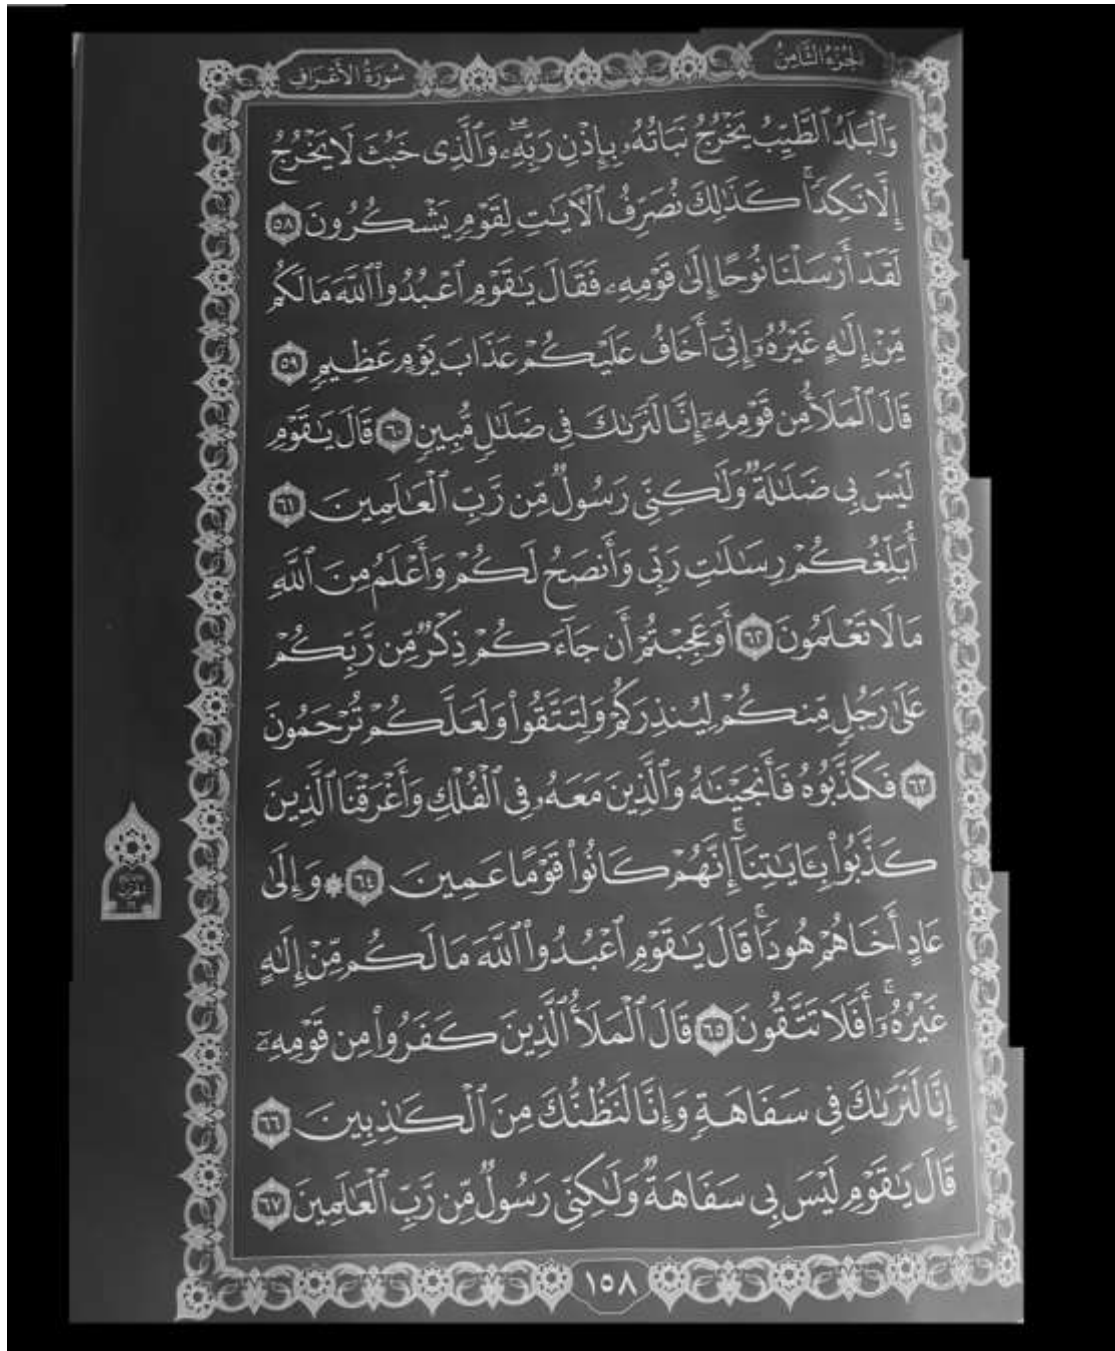 الجزء الثامن
سورة الأعراف
وَٱلْبَلَدُ ٱلطَّيِّبُ يَخْرُجُ نَبَاتُهُۥ بِإِذْنِ رَبِّهِۦۖ وَٱلَّذِى خَبُثَ لَا يَخْرُجُ
إِلَّا نَكِدًاۚ كَذَٰلِكَ نُصَرِّفُ ٱلْآيَـٰتِ لِقَوْمٍ يَشْكُرُونَ ٥٨
لَقَدْ أَرْسَلْنَا نُوحًا إِلَىٰ قَوْمِهِۦ فَقَالَ يَـٰقَوْمِ ٱعْبُدُوا۟ ٱللَّهَ مَا لَكُم
مِّنْ إِلَـٰهٍ غَيْرُهُۥٓ إِنِّىٓ أَخَافُ عَلَيْكُمْ عَذَابَ يَوْمٍ عَظِيمٍ ٥٩
قَالَ ٱلْمَلَأُ مِن قَوْمِهِۦٓ إِنَّا لَنَرَىٰكَ فِى ضَلَـٰلٍ مُّبِينٍ ٦٠ قَالَ يَـٰقَوْمِ
لَيْسَ بِى ضَلَـٰلَةٌ وَلَـٰكِنِّى رَسُولٌ مِّن رَّبِّ ٱلْعَـٰلَمِينَ ٦١
أُبَلِّغُكُمْ رِسَـٰلَـٰتِ رَبِّى وَأَنصَحُ لَكُمْ وَأَعْلَمُ مِنَ ٱللَّهِ
مَا لَا تَعْلَمُونَ ٦٢ أَوَعَجِبْتُمْ أَن جَآءَكُمْ ذِكْرٌ مِّن رَّبِّكُمْ
عَلَىٰ رَجُلٍ مِّنكُمْ لِيُنذِرَكُمْ وَلِتَتَّقُوا۟ وَلَعَلَّكُمْ تُرْحَمُونَ
٦٣ فَكَذَّبُوهُ فَأَنجَيْنَـٰهُ وَٱلَّذِينَ مَعَهُۥ فِى ٱلْفُلْكِ وَأَغْرَقْنَا ٱلَّذِينَ
كَذَّبُوا۟ بِـَٔايَـٰتِنَآۚ إِنَّهُمْ كَانُوا۟ قَوْمًا عَمِينَ ٦٤ ۞ وَإِلَىٰ
عَادٍ أَخَاهُمْ هُودًاۚ قَالَ يَـٰقَوْمِ ٱعْبُدُوا۟ ٱللَّهَ مَا لَكُم مِّنْ إِلَـٰهٍ
غَيْرُهُۥٓۚ أَفَلَا تَتَّقُونَ ٦٥ قَالَ ٱلْمَلَأُ ٱلَّذِينَ كَفَرُوا۟ مِن قَوْمِهِۦٓ
إِنَّا لَنَرَىٰكَ فِى سَفَاهَةٍ وَإِنَّا لَنَظُنُّكَ مِنَ ٱلْكَـٰذِبِينَ ٦٦
قَالَ يَـٰقَوْمِ لَيْسَ بِى سَفَاهَةٌ وَلَـٰكِنِّى رَسُولٌ مِّن رَّبِّ ٱلْعَـٰلَمِينَ ٦٧
١٥٨